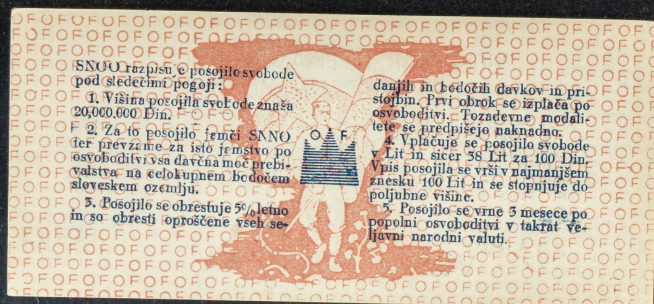 SNOO razpisuje posojilo svobode
pod sledečimi pogoji:
1. Višina posojila svobode znaša
20,000.000 Din.
2. Za to posojilo jemči SNNO
ter prevzame za isto jamstvo po
osvoboditvi vsa davčna moč prebi-
valstva na celokupnem bodočem
sloveskem ozemlju.
3. Posojilo se obrestuje 5% letno
in so obresti oproščene vseh se-
O F
danjih in bodočih davkov in pri-
stojbin. Prvi obrok se izplača po
osvoboditvi. Tozadevne modali-
tete se predpišejo naknadno.
4. Vplačuje se posojilo svobode
v Lit in sicer 38 Lit za 100 Din.
Vpis posojila se vrši v najmanjšem
znesku 100 Lit in se stopnjuje do
poljubne višine.
5. Posojilo se vrne 3 mesece po
popolni osvoboditvi v takrat ve-
ljavni narodni valuti.